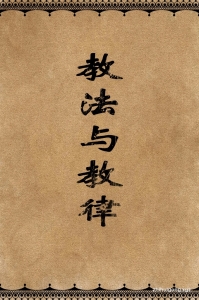 教法与教律